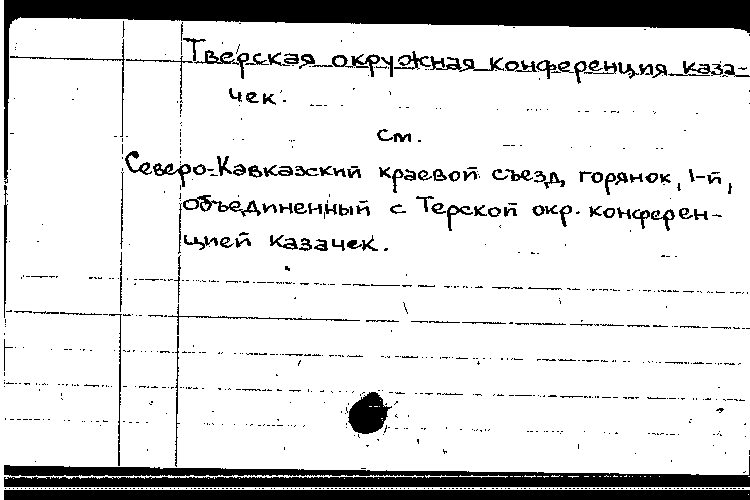 Тверская окружная конференция каза-
чек.
см.
Северо-Кавказский краевой съезд горянок, 1-й,
объединенный с Терской окр. конферен-
цией казачек.